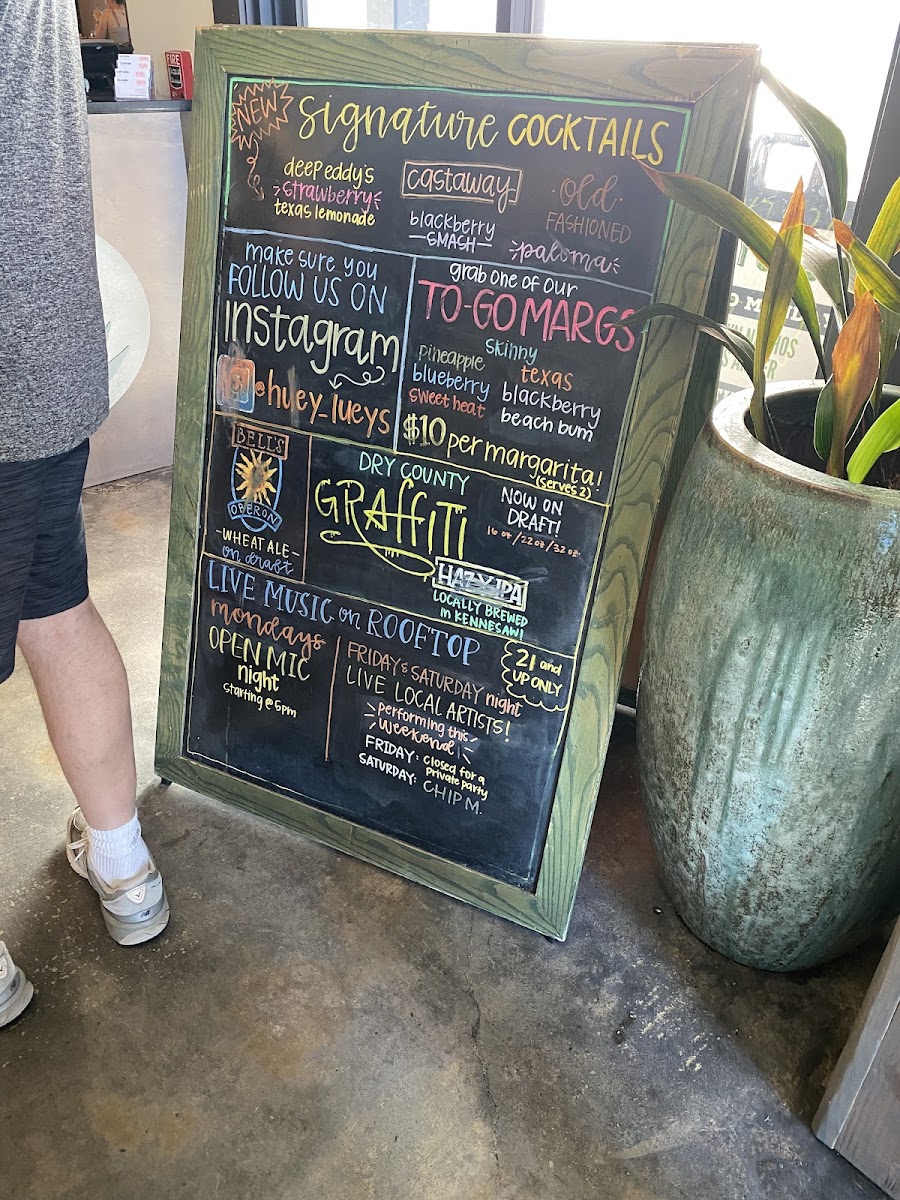 FIRE
NEW
signature COCKTAILS
deep eddy's
strawberry
texas lemonade
castaway
blackberry
SMASH
old
FASHIONED
paloma
make sure you
FOLLOW US ON
instagram
@huey_lueys
grab one of our
TO-GO MARGS
skinny
pineapple
blueberry
sweet heat
texas
blackberry
beach bum
$10 per margarita!
(serves 2)
BELL'S
OBERON
-WHEAT ALE-
on draft
DRY COUNTY
GRAffiTi
HAZY IPA
LOCALLY BREWED
in KENNESAW!
NOW ON
DRAFT!
16 oz / 22 oz / 32 oz.
LIVE MUSIC on ROOFTOP
21 and
UP ONLY
mondays
OPEN MIC
night
starting @ 6pm
FRIDAY & SATURDAY night
LIVE LOCAL ARTISTS!
performing this
weekend
FRIDAY: closed for a
private party
SATURDAY: CHIP M.